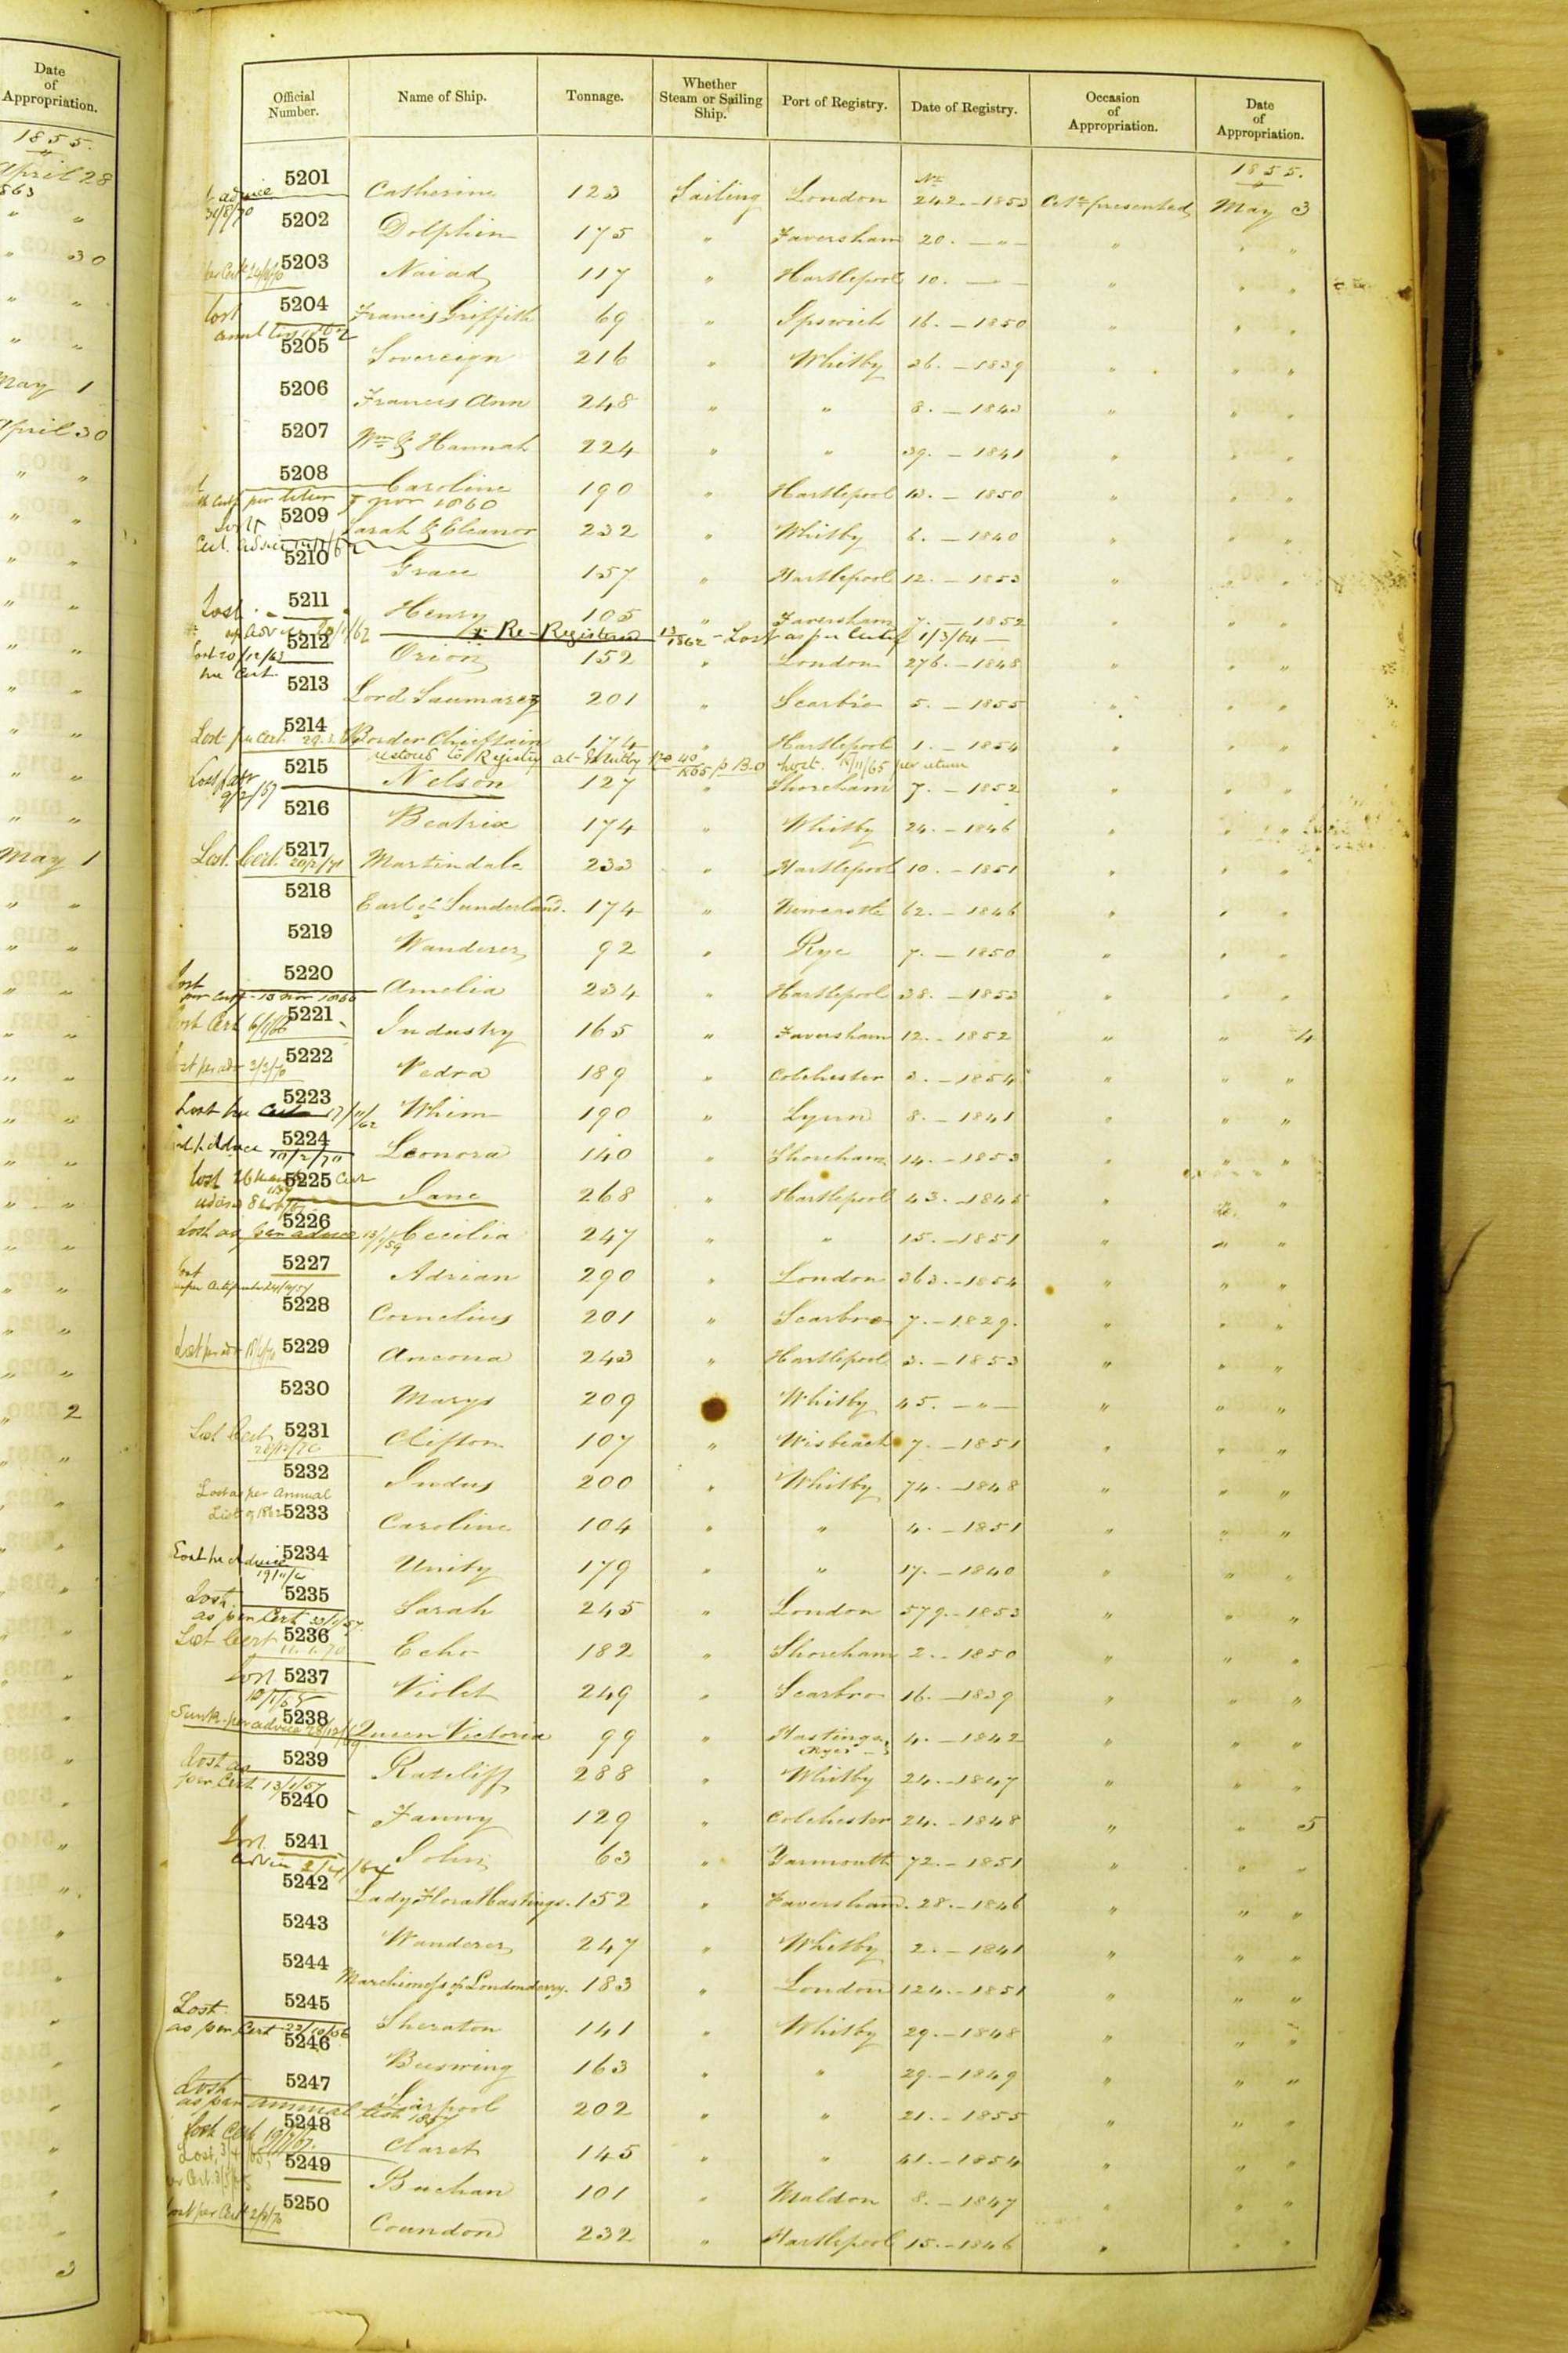 Date of Appropriation.
1855.
April 28
30
May 1
April 30
May 1
2
3
Official Number. Name of Ship. Tonnage. Whether Steam or Sailing Ship. Port of Registry. Date of Registry. Occasion of Appropriation. Date of Appropriation.
No. 1855.
5201 Catherine 123 Sailing London 242. - 1853 Certe presented May 3
advice 31/8/70
5202 Dolphin 175 " Faversham 20. — " — " " "
5203 Naiad 117 " Hartlepool 10. — — " " "
5204 Francis Griffith 69 " Ipswich 16. - 1850 " " "
Lost
5205 Sovereign 216 " Whitby 26. - 1839 " " "
5206 Francis Ann 248 " " 8. - 1843 " " "
5207 Wm & Hannah 224 " " 39. - 1841 " " "
5208 Caroline 190 " Hartlepool 13. - 1850 " " "
per letter 7 Nov 1860
5209 Sarah & Eleanor 232 " Whitby 6. - 1840 " " "
Lost
5210 Grace 157 " Hartlepool 12. - 1853 " " "
5211 Henry 105 " Faversham 7. - 1852 " " "
Lost
Re-Registered 13/1862 - Lost as per Certif 1/3/64
5212 Orion 152 " London 276. - 1848 " " "
Lost 20/12/63
Cert.
5213 Lord Saumarez 201 " Scarbro 5. - 1855 " " "
5214 Border Chieftain 174 " Hartlepool 1. - 1854 " " "
Lost per Cert.
restored to Registry at Whitby No 40/1865 Lost. 18/11/65 per return
5215 Nelson 127 " Shoreham 7. - 1852 " " "
9/2/57
5216 Beatrix 174 " Whitby 24. - 1846 " " "
5217 Martindale 233 " Hartlepool 10. - 1851 " " "
Lost. Cert. 20/2/71
5218 Earl of Sunderland. 174 " Newcastle 62. - 1846 " " "
5219 Wanderer 92 " Rye 7. - 1850 " " "
5220 Amelia 234 " Hartlepool 38. - 1853 " " "
Lost per Certf - 13 Nov 1860
5221 Industry 165 " Faversham 12. - 1852 " " 4
Lost Cert
5222 Vedra 189 " Colchester 3. - 1854 " " "
Lost per adv 3/3/70
5223 Whim 190 " Lynn 8. - 1841 " " "
Lost per Cert 17/11/62
5224 Leonora 140 " Shoreham 14. - 1853 " " "
10/2/70
5225 Jane 268 " Hartlepool 43. - 1845 " " "
Lost
5226 Cecilia 247 " " 15. - 1851 " " "
Lost as per advice
5227 Adrian 290 " London 363. - 1854 " " "
5228 Cornelius 201 " Scarbro 7. - 1829. " " "
5229 Ancona 243 " Hartlepool 3. - 1853 " " "
Lost per adv
5230 Marys 209 Whitby 45. — " — " " "
5231 Clifton 107 " Wisbeach 7. - 1851 " " "
Lost Cert
5232 Indus 200 " Whitby 74. - 1848 " " "
Lost as per Annual List of 1862
5233 Caroline 104 " " 4. - 1851 " " "
5234 Unity 179 " " 17. - 1840 " " "
Lost per Advice
5235 Sarah 245 " London 579. - 1853 " " "
Lost as per Cert
5236 Echo 182 " Shoreham 2. - 1850 " " "
Lost Cert 11.1.70
5237 Violet 249 " Scarbro 16. - 1839 " " "
Lost 10/1/65
5238 Queen Victoria 99 " Hastings 4. - 1842 " " "
Sunk - per advice
5239 Ratcliff 288 " Whitby 24. - 1847 " " "
Lost as per Cert. 13/1/57
5240 Fanny 129 " Colchester 24. - 1848 " " 5
5241 John 63 " Yarmouth 72. - 1851 " " "
Lost
5242 Lady Flora Hastings. 152 " Faversham. 28. - 1846 " " "
5243 Wanderer 247 " Whitby 2. - 1841 " " "
5244 Marchioness of Londonderry. 183 " London 124. - 1851 " " "
5245 Sheraton 141 " Whitby 29. - 1848 " " "
Lost as per Cert 22/10/56
5246 Beeswing 163 " " 29. - 1849 " " "
5247 Liarpool 202 " " 21. - 1855 " " "
Lost as per annual list 1857
5248 Claret 145 " " 41. - 1854 " " "
Lost Cert
5249 Buchan 101 " Maldon 8. - 1847 " " "
Lost,
5250 Coundon 232 " Hartlepool 15. - 1846 " " "
Lost per Cert